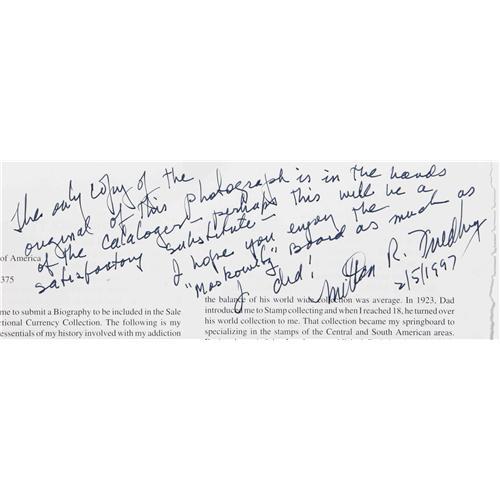 The only copy of the
original of this photograph is in the hands
of the cataloger - perhaps this will be a
satisfactory substitute -
I hope you enjoy the
"Moskowitz" Board as much as
I did!
Milton R. Friedberg
2/5/1997
of America
375
me to submit a Biography to be included in the Sale
ctional Currency Collection. The following is my
essentials of my history involved with my addiction
the balance of his world wide collection was average. In 1923, Dad
introduced me to Stamp collecting and when I reached 18, he turned over
his world collection to me. That collection became my springboard to
specializing in the stamps of the Central and South American areas.